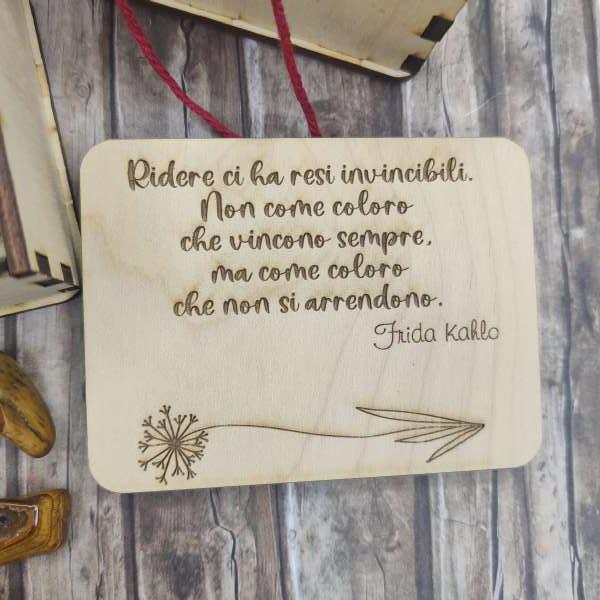 Ridere ci ha resi invincibili.
Non come coloro
che vincono sempre,
ma come coloro
che non si arrendono.
Frida Kahlo